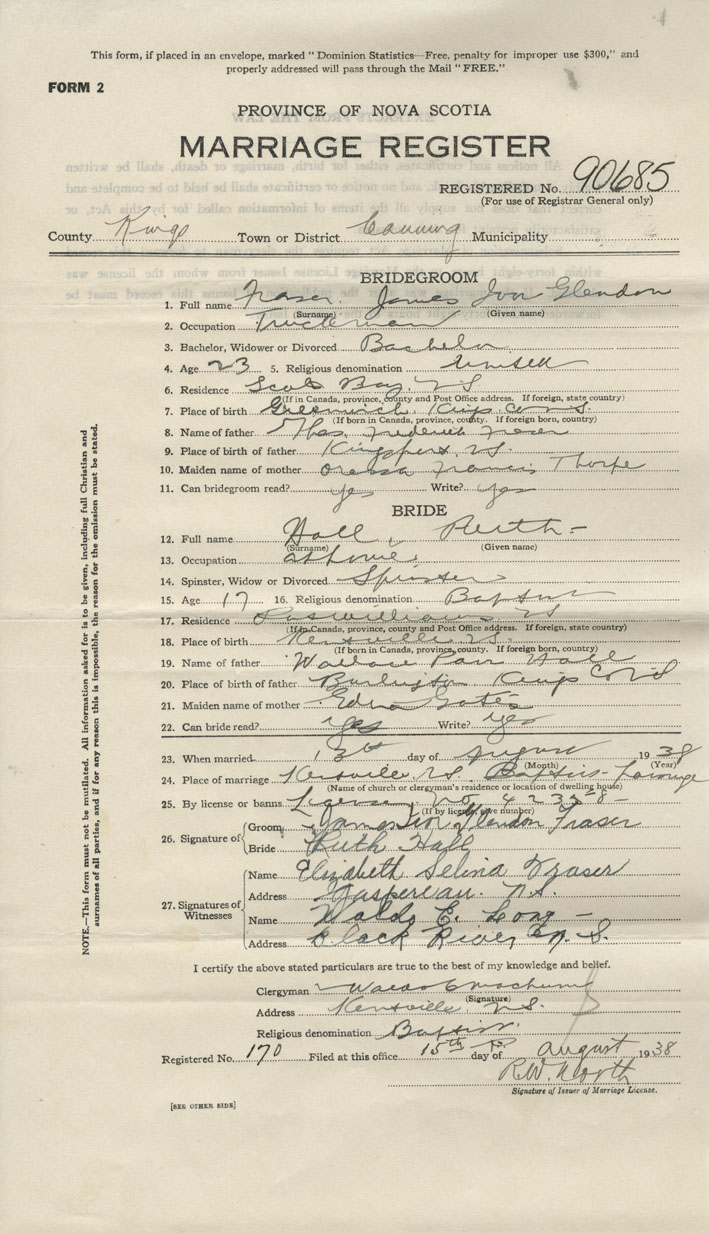 This form, if placed in an envelope, marked "Dominion Statistics—Free, penalty for improper use $300," and
properly addressed will pass through the Mail "FREE."
FORM 2
PROVINCE OF NOVA SCOTIA
MARRIAGE REGISTER
REGISTERED No. 90685
(For use of Registrar General only)
County Kings Town or District Canning Municipality
BRIDEGROOM
1. Full name Fraser James Ivor Glendon
(Surname) (Given name)
2. Occupation Truckman
3. Bachelor, Widower or Divorced Bachelor
4. Age 23 5. Religious denomination United
6. Residence Scots Bay, N.S.
(If in Canada, province, county and Post Office address. If foreign, state country)
7. Place of birth Greenwich Kings Co N.S.
(If born in Canada, province, county. If foreign born, country)
8. Name of father Thos. Frederick Fraser
9. Place of birth of father Kingsport, N.S.
10. Maiden name of mother Francis Thorpe
11. Can bridegroom read? yes Write? yes
BRIDE
12. Full name Hall, Ruth
(Surname) (Given name)
13. Occupation at home
14. Spinster, Widow or Divorced Spinster
15. Age 17 16. Religious denomination Baptist
17. Residence Port Williams N.S.
(If in Canada, province, county and Post Office address. If foreign, state country)
18. Place of birth Kentville N.S.
(If born in Canada, province, county. If foreign born, country)
19. Name of father Wallace Hall
20. Place of birth of father Burlington Kings Co N.S.
21. Maiden name of mother Edna Gates
22. Can bride read? yes Write? yes
23. When married 13th day of August 1938
(Month) (Year)
24. Place of marriage Kentville, N.S. Baptist Parsonage
(Name of church or clergyman's residence or location of dwelling house)
25. By license or banns License No
(If by license, give number)
26. Signature of Groom James Ivor Glendon Fraser
Bride Ruth Hall
27. Signatures of Witnesses
Name Elizabeth Selina Fraser
Address Gaspereau. N.S.
Name Waldo E. Long
Address Black River N.S.
I certify the above stated particulars are true to the best of my knowledge and belief.
Clergyman
(Signature)
Address Kentville N.S.
Religious denomination Baptist
Registered No. 170 Filed at this office 15th day of August 1938
R.W. North
Signature of Issuer of Marriage License.
[SEE OTHER SIDE]
NOTE.—This form must not be mutilated. All information asked for is to be given, including full Christian and
surnames of all parties, and if for any reason this is impossible, the reason for the omission must be stated.